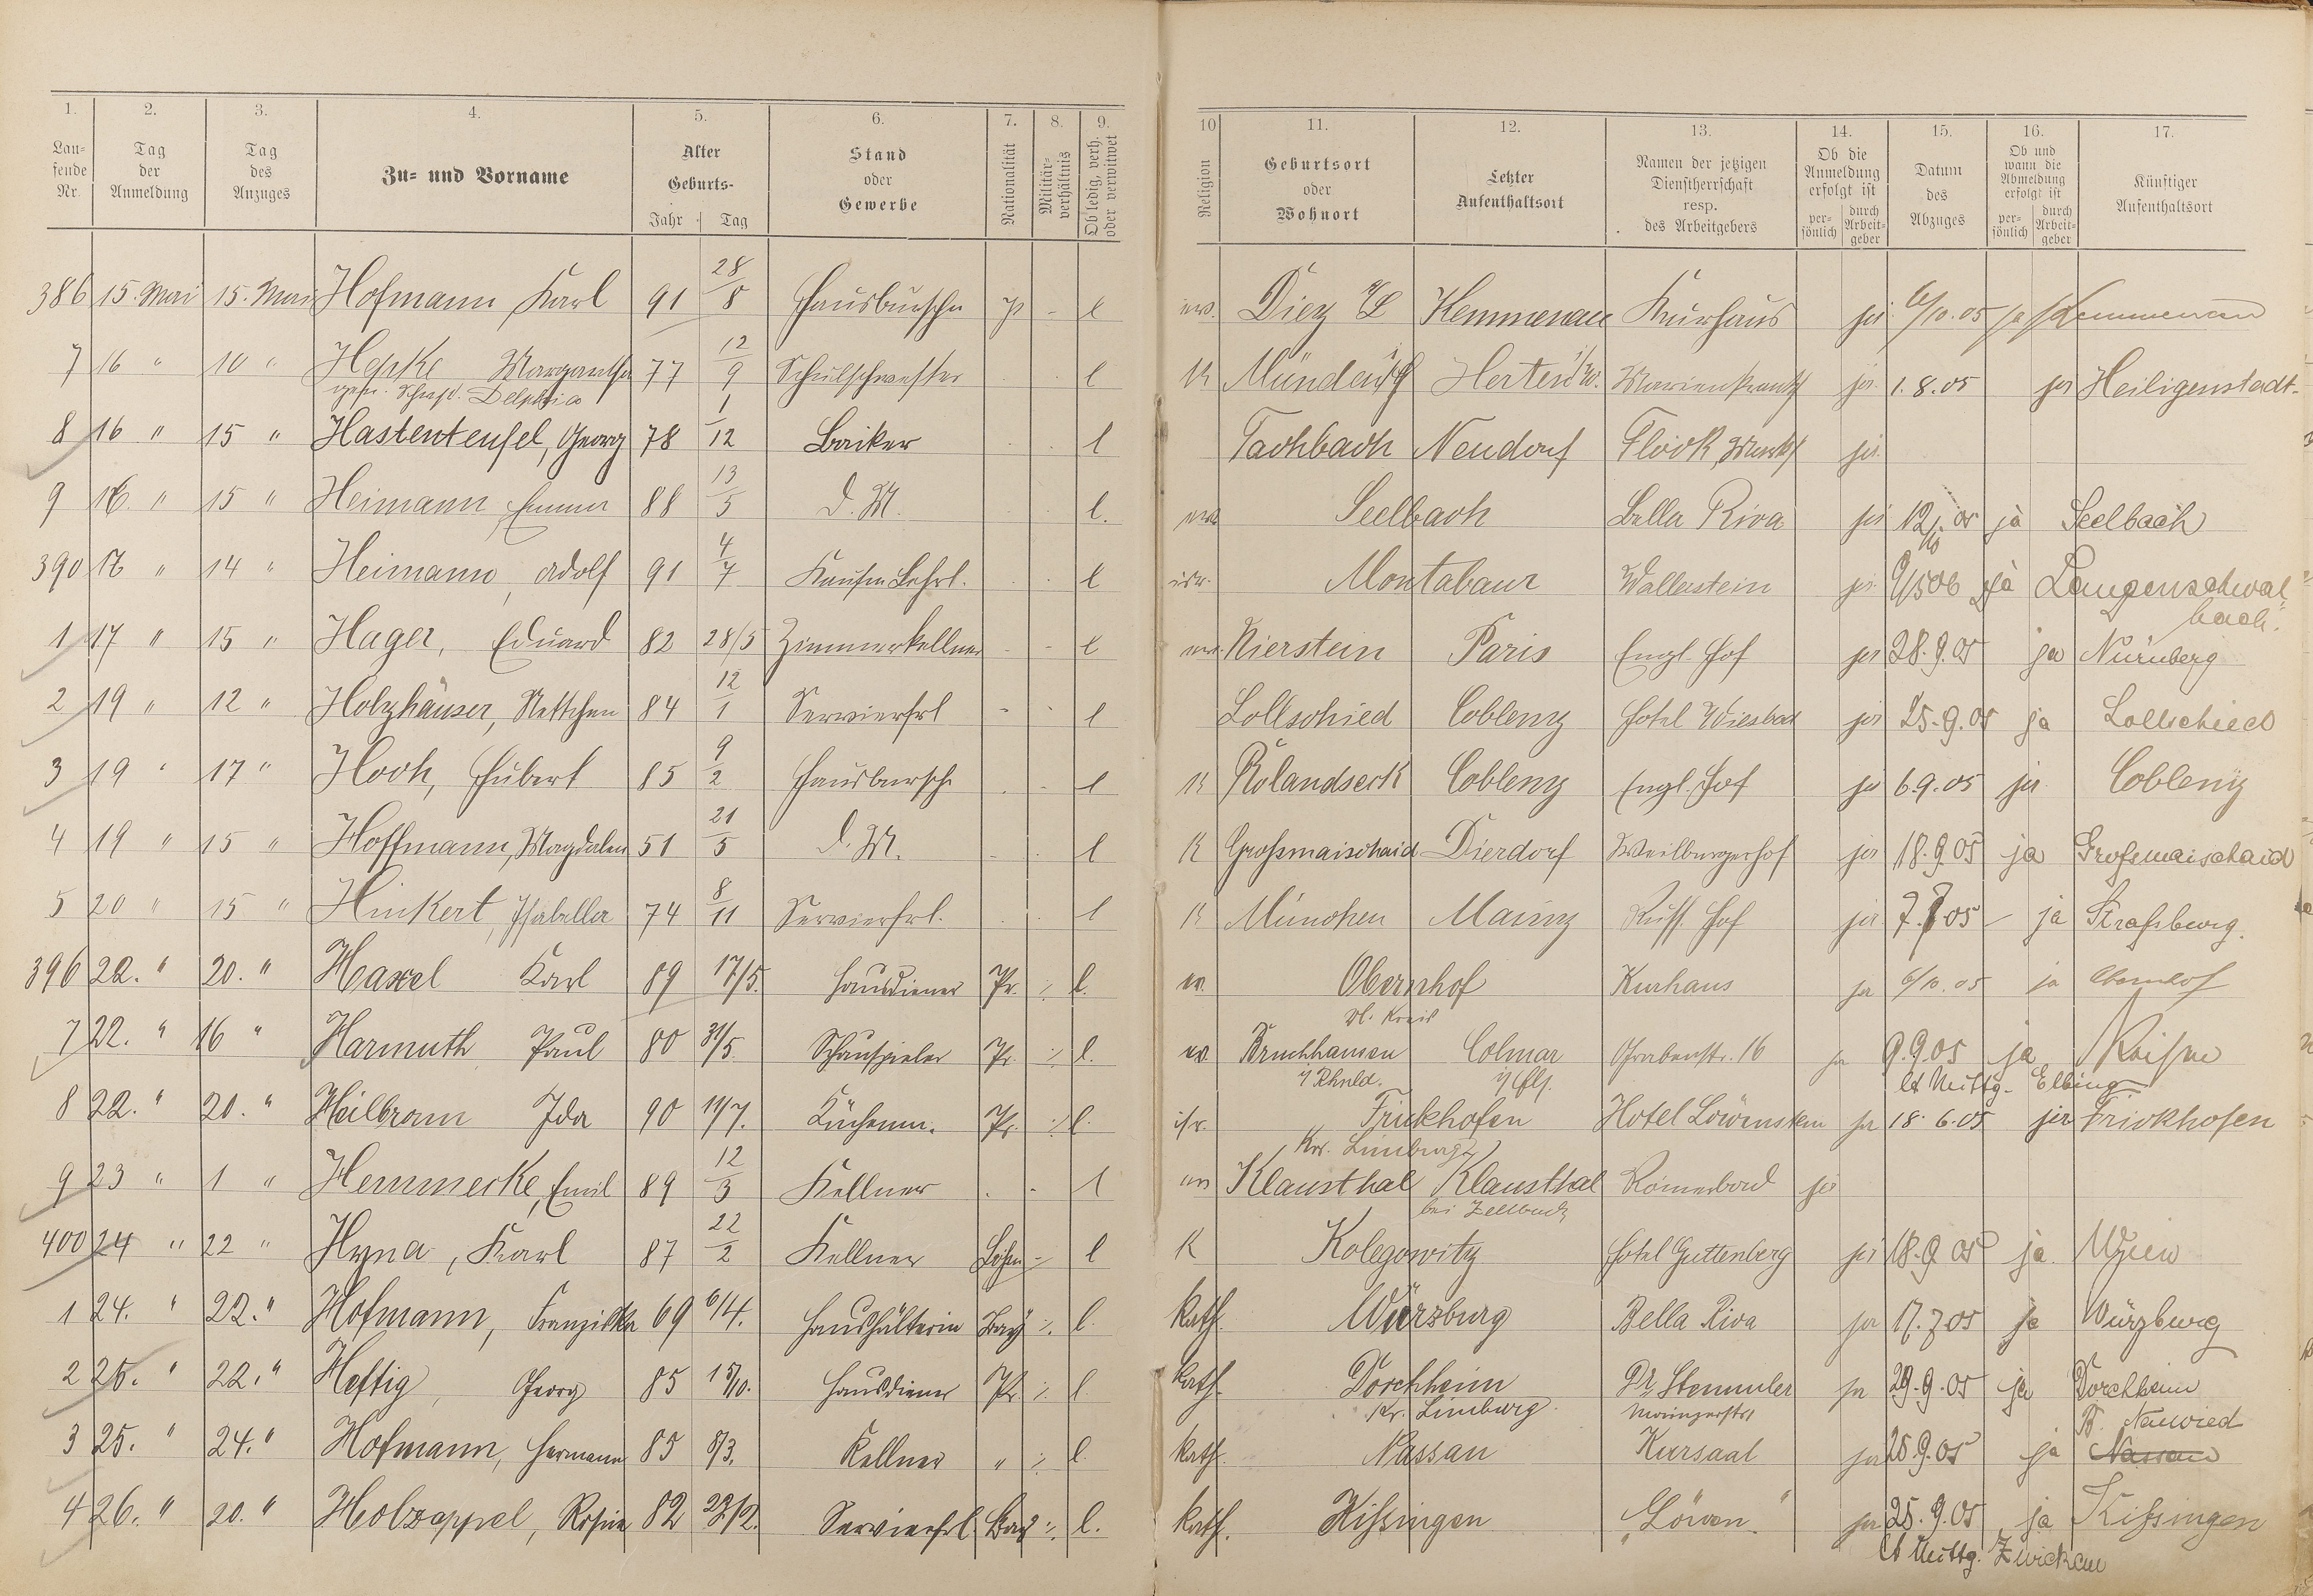 1. 2. 3. 4. 5. 6. 7. 8. 9. 10 11. 12. 13. 14. 15. 16. 17.
Lau-
fende
Nr.
Tag
der
Anmeldung
Tag
des
Anzuges
Zu- und Vorname
Alter
Geburts-
Jahr Tag
Stand
oder
Gewerbe
Nationalität
Militär-
verhältnis
Ob ledig, verh.
oder verwitwet
Religion
Geburtsort
oder
Wohnort
Letzter
Aufenthaltsort
Namen der jetzigen
Dienstherrschaft
resp.
des Arbeitgebers
Ob die
Anmeldung
erfolgt ist
per-
sönlich
durch
Arbeit-
geber
Datum
des
Abzuges
Ob und
wann die
Abmeldung
erfolgt ist
per-
sönlich
durch
Arbeit-
geber
Künftiger
Aufenthaltsort
386 15. Mai 15. Mai Hofmann Karl 91 28/8 Hausbursche p - l ev. Diez a/L Kemmenau Kurhaus ja 6/10.05 ja Kemmenau
7 16 " 10 " Hepke Margaretha 77 12/9 Schulschwester l K Herten i/W. ja 1.8.05 ja Heiligenstadt
gen. Schwst. Delphia
8 16 " 15 " Hastenteufel, Georg 78 1/12 Bäcker l Fachbach Neudorf Flöck ja
9 16. " 15 " Heimann, Emma 88 13/5 D. M. l. ev. Seelbach Bella Riva ja 12/10 05 ja Seelbach
390 16 " 14 " Heimann, Adolf 91 4/7 Kaufm. Lehrl. l isr. Montabaur Wallerstein ja 9/5 06 ja Langenschwal-
bach.
1 17 " 15 " Hager, Eduard 82 28/5 Zimmerkellner - - l ev. Nierstein Paris Engl. Hof ja 28.9.05 ja Nürnberg
2 19 " 12 " Holzhäuser, Nettchen 84 12/1 Servierfrl - l Lollschied Coblenz Hotel Wiesbad ja 25.9.05 ja Lollschied
3 19 " 17 " Hoch, Hubert 85 9/2 Hausbursche l K Rolandseck Coblenz Engl. Hof ja 6.9.05 ja Coblenz
4 19 " 15 " Hoffmann, Magdalen 51 21/5 D. M. l K Großmaischaid Dierdorf Weilburgerhof ja 18.9.05 ja Großmaischaid
5 20 " 15 " Hinkert, Isabella 74 8/11 Servierfrl. l K München Mainz Russ. Hof ja 7. 05 - ja Straßburg.
396 22. " 20. " Haxel Karl 89 17/5. Hausdiener Pr. ./. l. ev. Obernhof Kurhaus ja 6/10.05 ja Obernhof
7 22. " 16 " Harmuth Paul 80 31/5. Schauspieler Pr. ./. l. ev. Bruchhausen Colmar Grabenstr. 16 ja 9.9.05 ja
i/ Rhnld. i/ Els. lt Mittg. Elbing
8 22. " 20. " Heilbronn Ida 90 Küchenm. Pr. ./. l. isr. Frickhofen Hotel Löwenstein ja 18.6.05 ja Frickhofen
Krs. Limburg
9 23 " 1 " Hemmecke, Emil 89 12/3 Kellner . - l ev Klausthal Klausthal Römerbad ja
bei Zellbach
400 24 " 22 " Hyna, Karl 87 22/2 Kellner Böhm - l K Kolegowitz Hotel Guttenberg ja 18.9.05 ja Wien
1 24. " 22. " Hofmann, Franziska 69 6/4. Haushälterin Bay ./. l. kath. Würzburg Bella Riva ja 17.7.05 ja Würzburg
2 25. " 22. " Heftig, Georg 85 15/10. Hausdiener Pr. ./. l kath. Dorchheim Dr. Stemmler ja 29.9.05 ja Dorchheim
Kr. Limburg. Mainzerstr
3 25. " 24. " Hofmann, Hermann 85 8/3. Kellner " ./. l. kath. Nassau Kursaal ja 25.9.05 ja Neuwied
Nassau
4 26. " 20. " Holzappel, Rosina 82 22/12. Servierfrl Bay ./. l. kath. Kissingen "Löwen" ja 25.9.05 ja Kissingen
lt Mittg. Zwickau